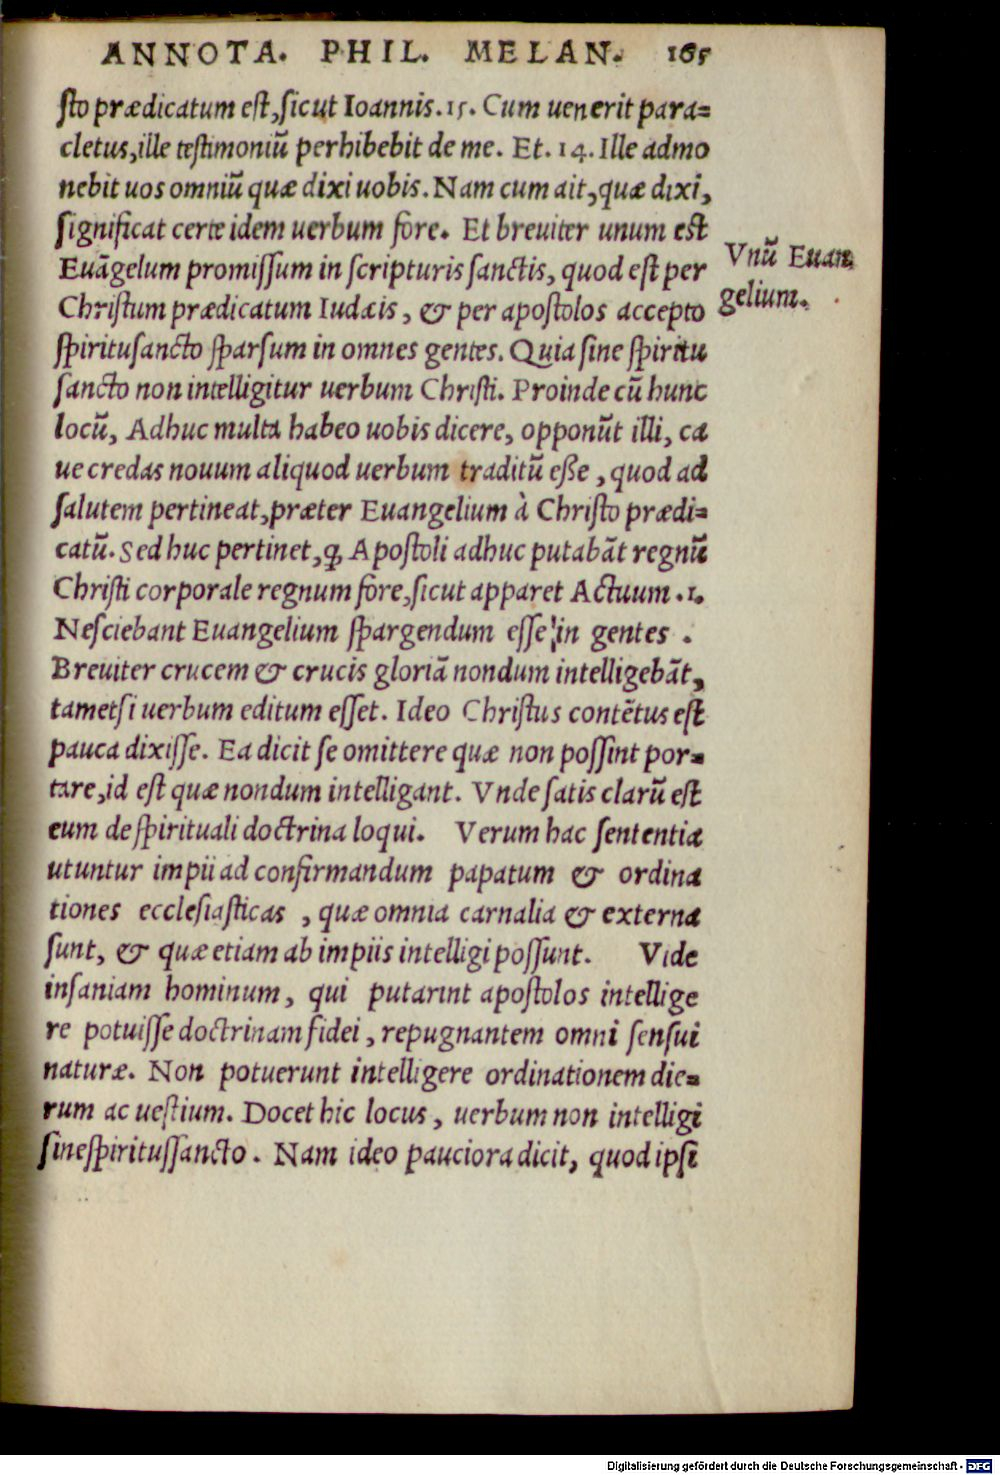 ANNOTA. PHIL. MELAN. 165
sto prædicatum est, sicut Ioannis. 15. Cum uenerit para=
cletus, ille testimoniũ perhibebit de me. Et. 14. Ille admo
nebit uos omniũ quæ dixi uobis. Nam cum ait, quæ dixi,
significat certe idem uerbum fore. Et breuiter unum est
Euãgelum promissum in scripturis sanctis, quod est per
Christum prædicatum Iudæis, & per apostolos accepto
spiritusancto sparsum in omnes gentes. Quia sine spiritu
sancto non intelligitur uerbum Christi. Proinde cũ hunc
locũ, Adhuc multa habeo uobis dicere, opponũt illi, ca
ue credas nouum aliquod uerbum traditũ esse, quod ad
salutem pertineat, præter Euangelium à Christo prædi=
catũ. Sed huc pertinet, ꝙ Apostoli adhuc putabãt regnũ
Christi corporale regnum fore, sicut apparet Actuum. 1.
Nesciebant Euangelium spargendum esse in gentes.
Breuiter crucem & crucis gloriã nondum intelligebãt,
tametsi uerbum editum esset. Ideo Christus contẽtus est
pauca dixisse. Ea dicit se omittere quæ non possint por=
tare, id est quæ nondum intelligant. Vnde satis clarũ est
eum de spirituali doctrina loqui. Verum hac sententia
utuntur impii ad confirmandum papatum & ordina
tiones ecclesiasticas, quæ omnia carnalia & externa
sunt, & quæ etiam ab impiis intelligi possunt. Vide
insaniam hominum, qui putarint apostolos intellige
re potuisse doctrinam fidei, repugnantem omni sensui
naturæ. Non potuerunt intelligere ordinationem die=
rum ac uestium. Docet hic locus, uerbum non intelligi
sine spiritussancto. Nam ideo pauciora dicit, quod ipsi
Vnũ Euan
gelium.
Digitalisierung gefördert durch die Deutsche Forschungsgemeinschaft - DFG